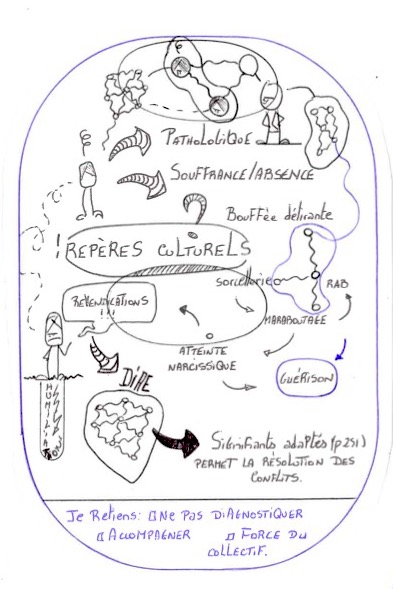 PATHOLOGIQUE
SOUFFRANCE/ABSENCE
?
Bouffée délirante
! REPÈRES CULTURELS
sorcellerie
RAB
REVENDICATIONS
!!!
MARABOUTAGE
ATTEINTE
NARCISSIQUE
DIRE
GUÉRISON
Signifiants adaptés (p251)
PERMET LA RÉSOLUTION DES
CONFLITS.
Je Retiens: NE PAS DIAGNOSTIQUER
ACCOMPAGNER FORCE DU
COLLECTIF.